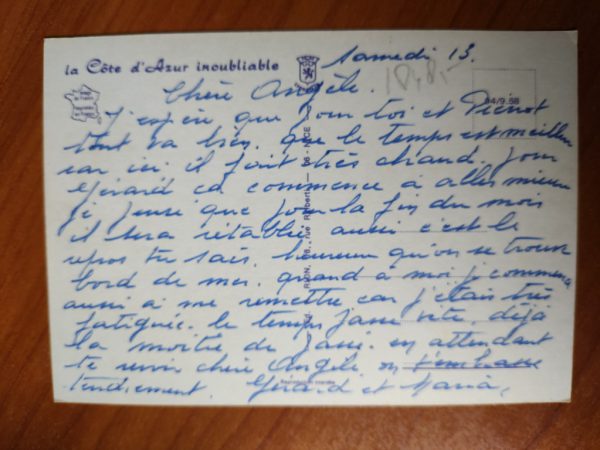 la Côte d'Azur inoubliable
Samedi 13.
18,8,-
Chère Angèle.
94/9.88
J'espère que pour toi et Pierrot
tout va bien. que le temps est meilleur
car ici il fait très chaud. pour
Gérard ca commence à aller mieux
je pense que pour la fin du mois
il sera rétablie aussi c'est le
repos tu sais. heureux qu'on se trouve
bord de mer. quand à moi je commence
aussi à me remettre car j'étais très
fatiguée. le temps passe vite, déjà
la moitié de passé. en attendant
te revoir chère Angèle on t'embrasse
tendrement. Gérard et Maria,